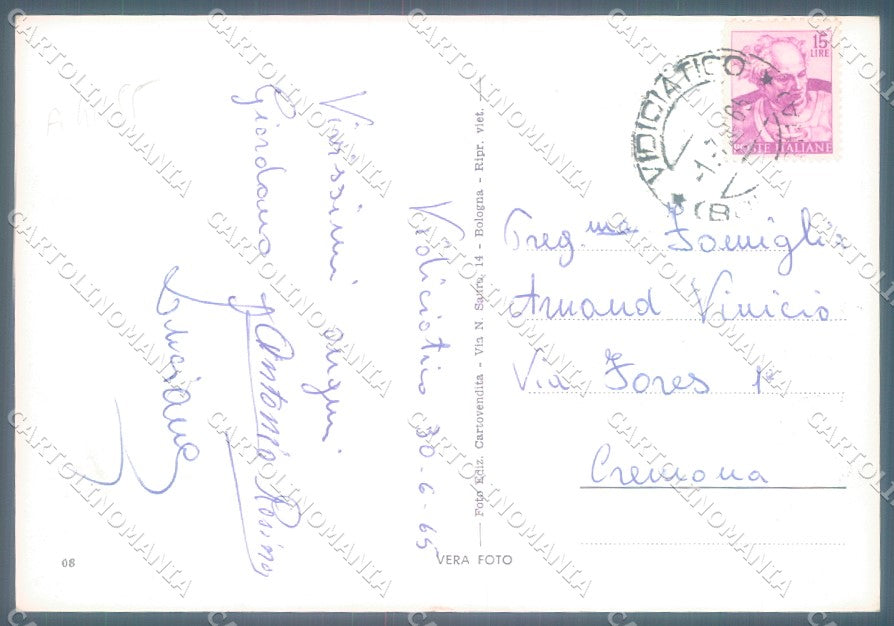 Vidiciatico 30-6-65
Vivissimi auguri
Giordana
Antonio
Luciana
Foto Ediz. Cartovendita - Via N. Sauro, 14 - Bologna - Ripr. viet.
VERA FOTO
08
15
LIRE
POSTE ITALIANE
VIDICIATICO
(BO
Preg.ma Famiglia
Armand Vinicio
Via Fores 1ª
Cremona
CARTOLINOMANIA